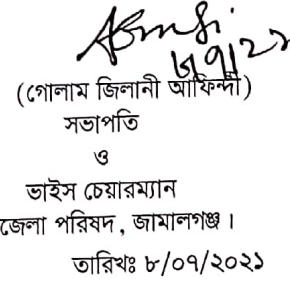 (গোলাম জিলানী আফিন্দী)
সভাপতি
ও
ভাইস চেয়ারম্যান
জেলা পরিষদ, জামালগঞ্জ।
তারিখঃ ৮/০৭/২০২১